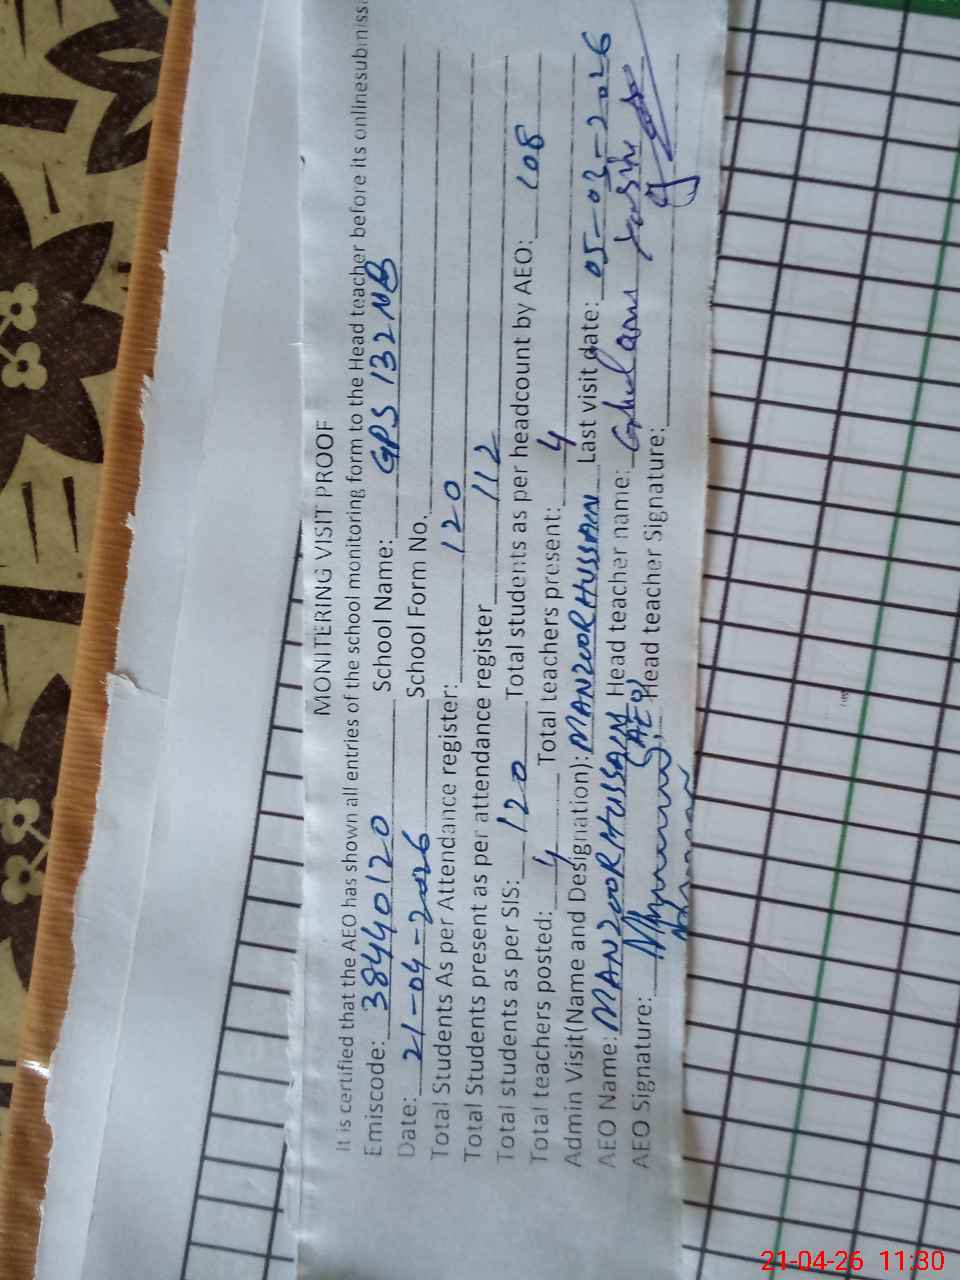 MONITERING VISIT PROOF
It is certified that the AEO has shown all entries of the school monitoring form to the Head teacher before its onlinesubmiss
Emiscode: 38440120 School Name: GPS 132 NB
Date: 21-04-2026 School Form No.
Total Students As per Attendance register: 120
Total Students present as per attendance register 112
Total students as per SIS: 120 Total students as per headcount by AEO: 108
Total teachers posted: 4 Total teachers present: 4
Admin Visit(Name and Designation): MANZOOR HUSSAIN Last visit date: 05-03-2026
AEO Name: MANZOOR HUSSAIN (AEO) Head teacher name: Ghulam
AEO Signature: Head teacher Signature:
21-04-26 11:30